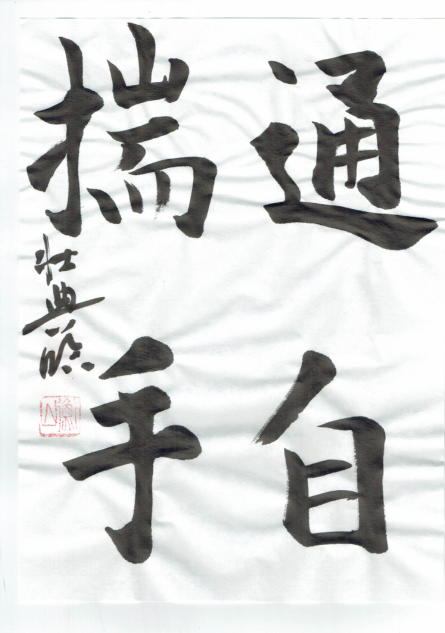 通自
揣手
壮典臨